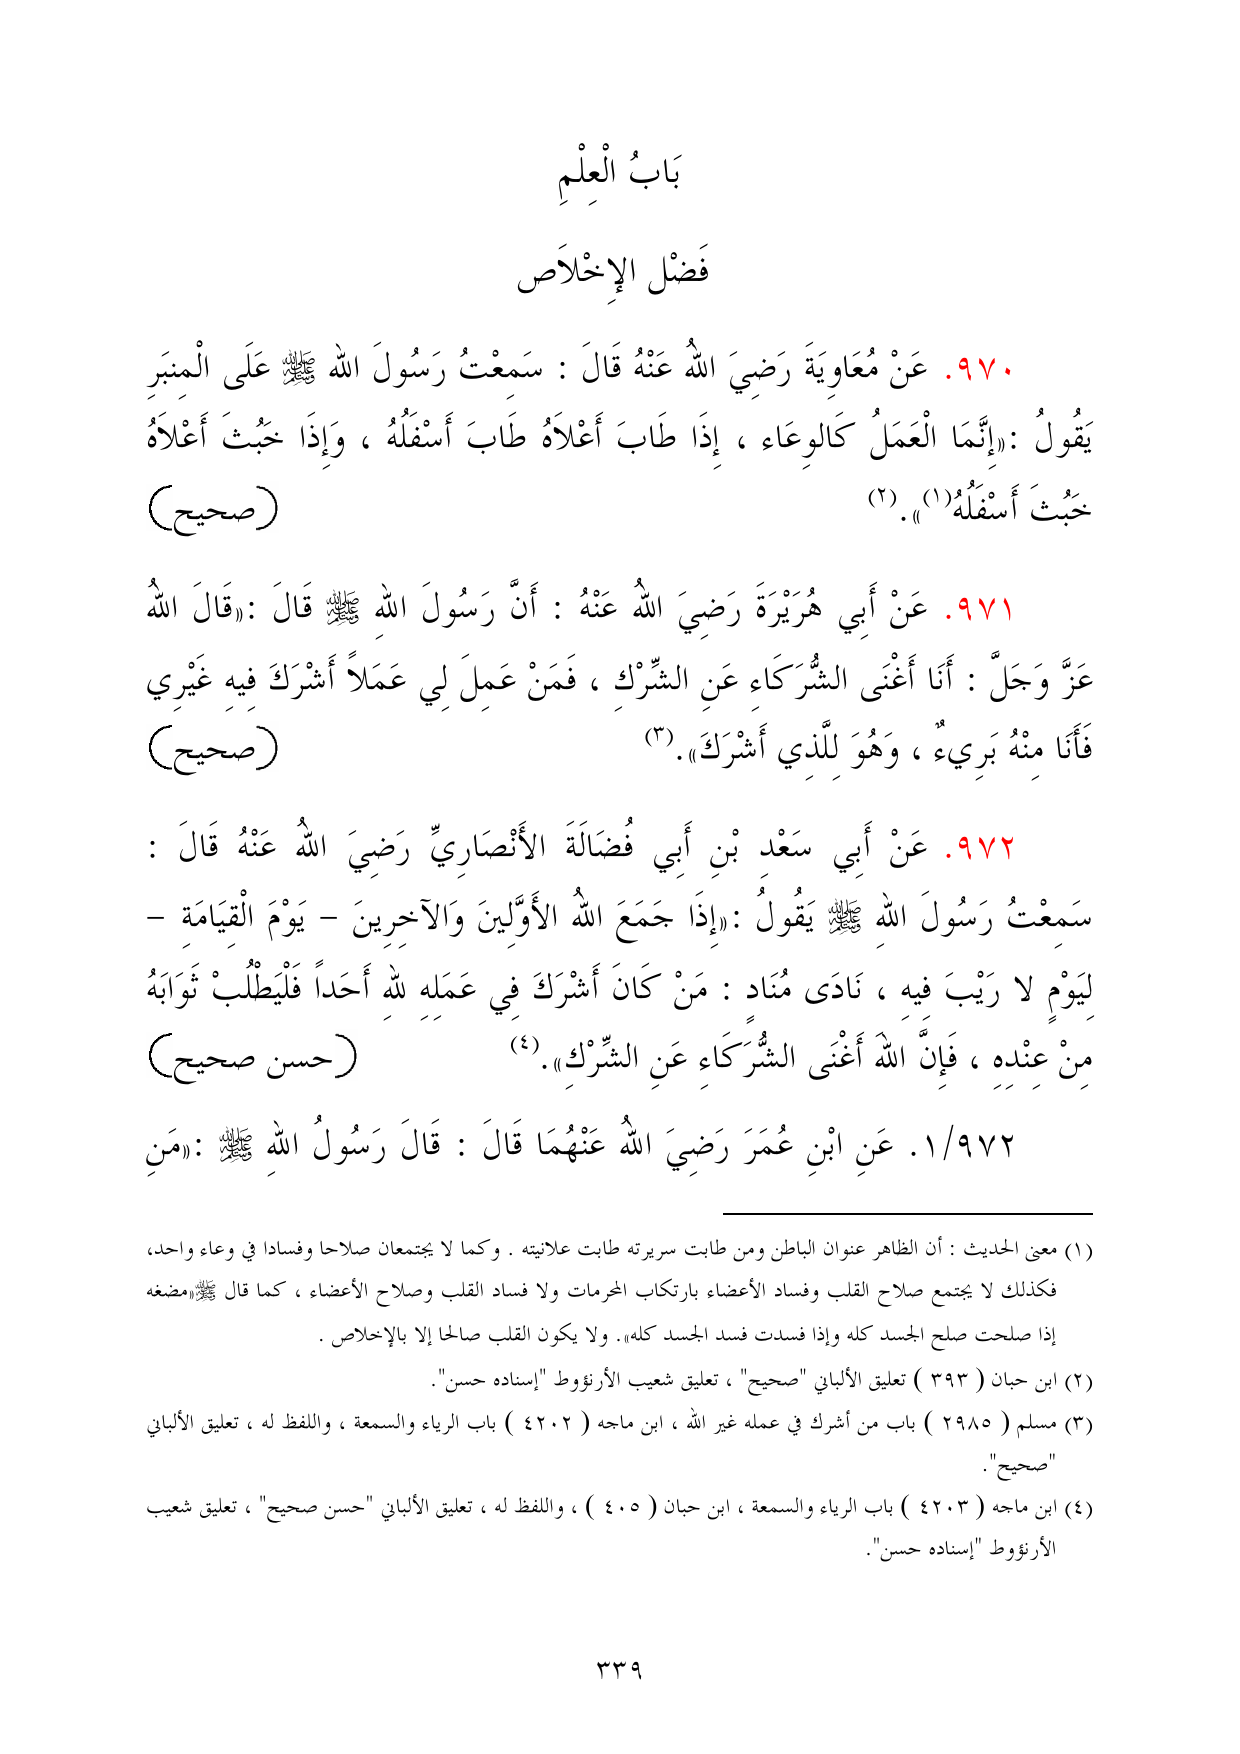 بَابُ الْعِلْمِ
فَضْل الإِخْلاَص
٩٧٠. عَنْ مُعَاوِيَةَ رَضِيَ اللهُ عَنْهُ قَالَ : سَمِعْتُ رَسُولَ الله ﷺ عَلَى الْمِنبَرِ
يَقُولُ :«إِنَّمَا الْعَمَلُ كَالوِعَاء ، إِذَا طَابَ أَعْلاَهُ طَابَ أَسْفَلُهُ ، وَإِذَا خَبُثَ أَعْلاَهُ
خَبُثَ أَسْفَلُهُ(١)».(٢) (صحيح)
٩٧١. عَنْ أَبِي هُرَيْرَةَ رَضِيَ اللهُ عَنْهُ : أَنَّ رَسُولَ اللهِ ﷺ قَالَ :«قَالَ اللهُ
عَزَّ وَجَلَّ : أَنَا أَغْنَى الشُّرَكَاءِ عَنِ الشِّرْكِ ، فَمَنْ عَمِلَ لِي عَمَلاً أَشْرَكَ فِيهِ غَيْرِي
فَأَنَا مِنْهُ بَرِيءٌ ، وَهُوَ لِلَّذِي أَشْرَكَ».(٣) (صحيح)
٩٧٢. عَنْ أَبِي سَعْدِ بْنِ أَبِي فُضَالَةَ الأَنْصَارِيِّ رَضِيَ اللهُ عَنْهُ قَالَ :
سَمِعْتُ رَسُولَ اللهِ ﷺ يَقُولُ :«إِذَا جَمَعَ اللهُ الأَوَّلِينَ وَالآخِرِينَ – يَوْمَ الْقِيَامَةِ –
لِيَوْمٍ لا رَيْبَ فِيهِ ، نَادَى مُنَادٍ : مَنْ كَانَ أَشْرَكَ فِي عَمَلِهِ للهِ أَحَداً فَلْيَطْلُبْ ثَوَابَهُ
مِنْ عِنْدِهِ ، فَإِنَّ اللهَ أَغْنَى الشُّرَكَاءِ عَنِ الشِّرْكِ».(٤) (حسن صحيح)
١/٩٧٢. عَنِ ابْنِ عُمَرَ رَضِيَ اللهُ عَنْهُمَا قَالَ : قَالَ رَسُولُ اللهِ ﷺ :«مَنِ
(١) معنى الحديث : أن الظاهر عنوان الباطن ومن طابت سريرته طابت علانيته . وكما لا يجتمعان صلاحا وفسادا في وعاء واحد،
فكذلك لا يجتمع صلاح القلب وفساد الأعضاء بارتكاب المحرمات ولا فساد القلب وصلاح الأعضاء ، كما قال ﷺ«مضغه
إذا صلحت صلح الجسد كله وإذا فسدت فسد الجسد كله». ولا يكون القلب صالحا إلا بالإخلاص .
(٢) ابن حبان ( ٣٩٣ ) تعليق الألباني "صحيح" ، تعليق شعيب الأرنؤوط "إسناده حسن".
(٣) مسلم ( ٢٩٨٥ ) باب من أشرك في عمله غير الله ، ابن ماجه ( ٤٢٠٢ ) باب الرياء والسمعة ، واللفظ له ، تعليق الألباني
"صحيح".
(٤) ابن ماجه ( ٤٢٠٣ ) باب الرياء والسمعة ، ابن حبان ( ٤٠٥ ) ، واللفظ له ، تعليق الألباني "حسن صحيح" ، تعليق شعيب
الأرنؤوط "إسناده حسن".
٣٣٩